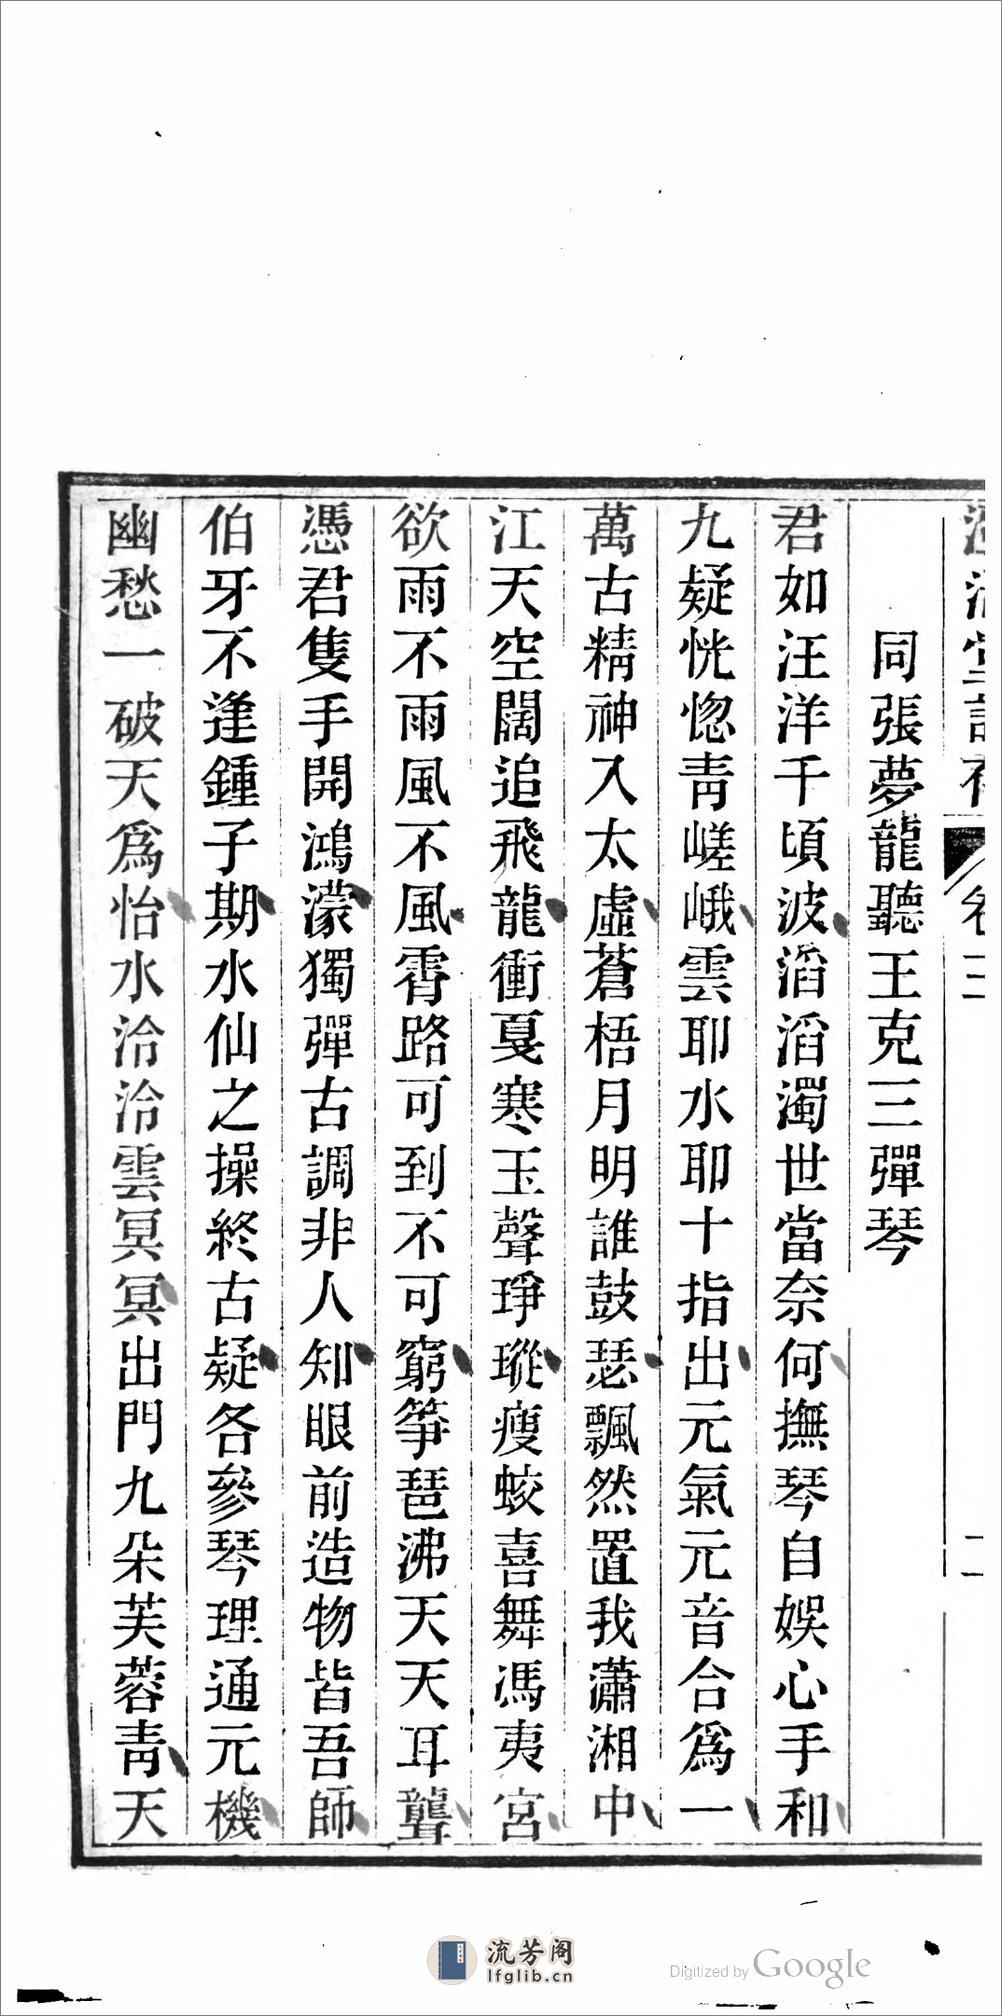 堂詩存
卷三
二
同張夢龍聽王克三彈琴
君如汪洋千頃波滔滔濁世當奈何撫琴自娛心手和
九疑恍惚靑嵯峨雲耶水耶十指出元氣元音合爲一
萬古精神入太虛蒼梧月明誰鼓瑟飄然置我瀟湘中
江天空闊追飛龍衝戛寒玉聲琤瑽瘦蛟喜舞馮夷宮
欲雨不雨風不風霄路可到不可窮箏琶沸天天耳聾
憑君隻手開鴻濛獨彈古調非人知眼前造物皆吾師
伯牙不逢鍾子期水仙之操終古疑各參琴理通元機
幽愁一破天爲怡水泠泠雲冥冥出門九朵芙蓉靑天
流芳阁
lfglib.cn
Digitized by Google